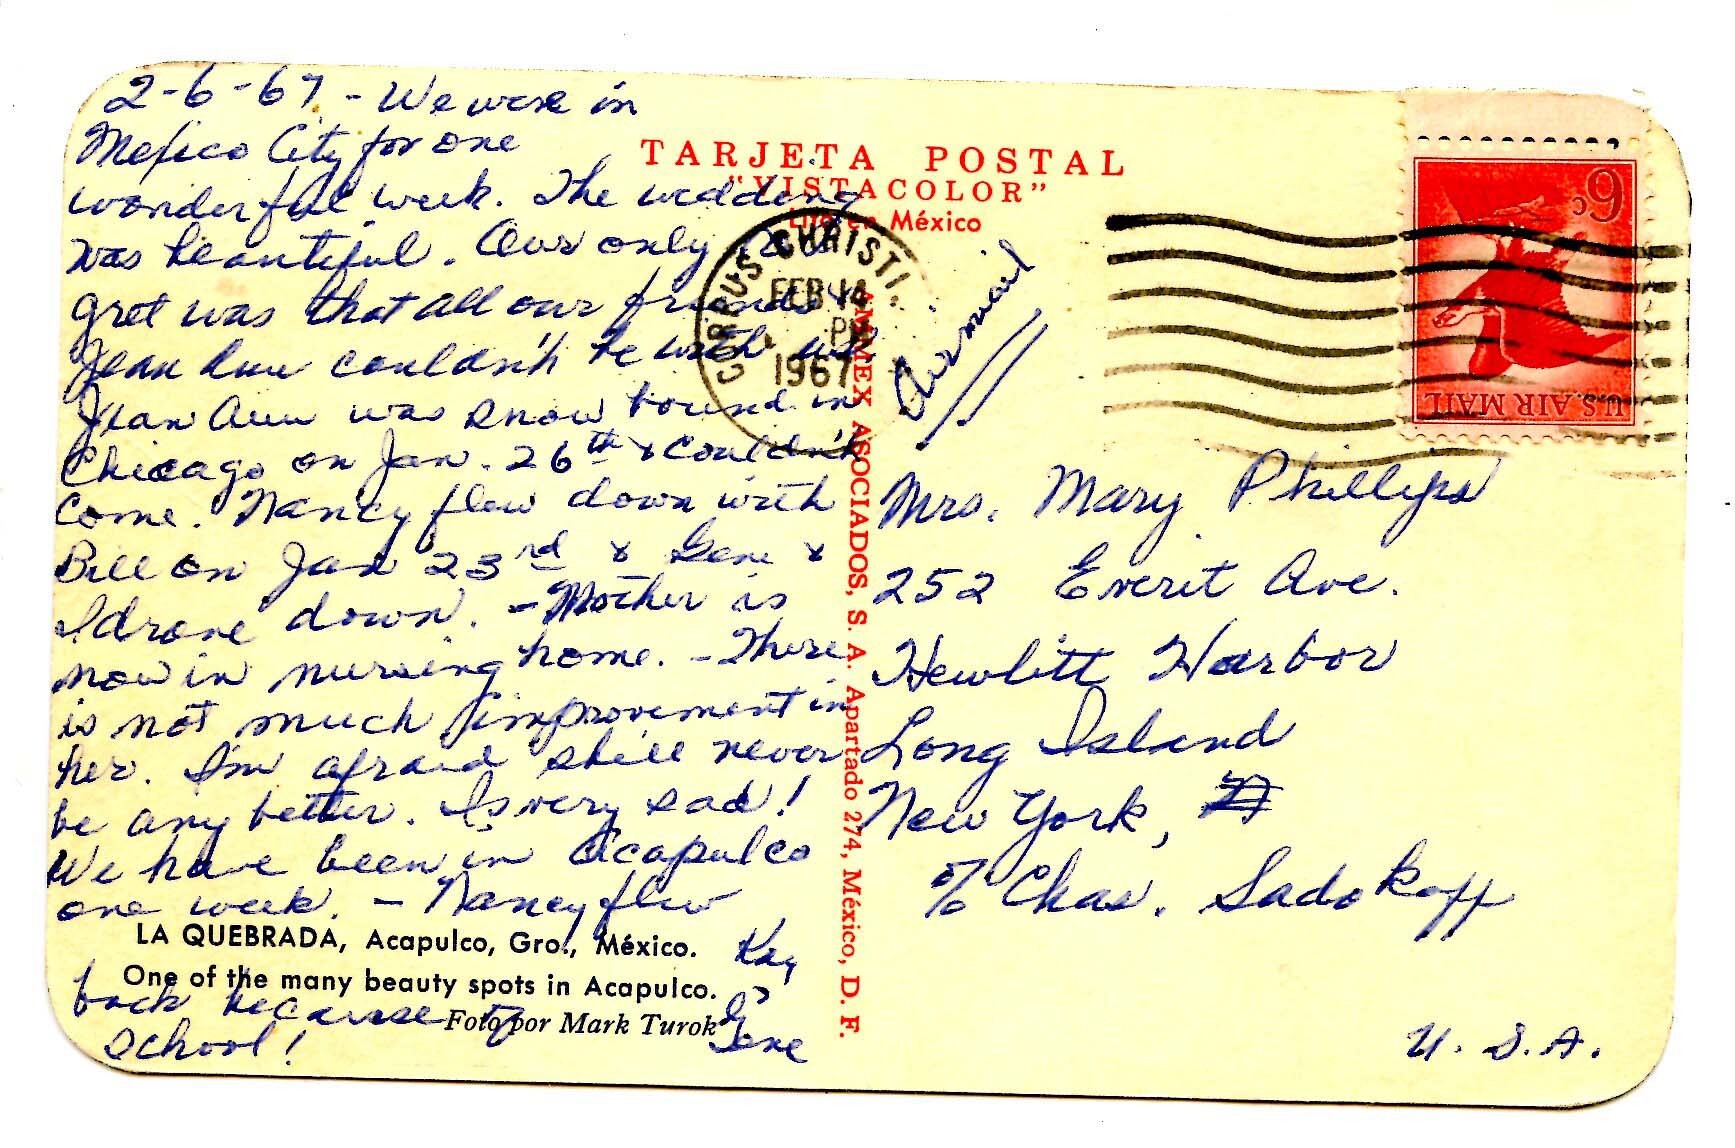 2-6-67 - We were in
Mexico City for one
wonderful week. The wedding
was beautiful. Our only re-
gret was that all our friends &
Jean Ann couldn't be with us.
Jean Ann was snow bound in
Chicago on Jan. 26th & couldn't
come. Nancy flew down with
Bill on Jan 23rd & Gene &
I drove down. - Mother is
now in nursing home. - There
is not much improvement in
her. I'm afraid she'll never
be any better. Is very sad!
We have been in Acapulco
one week. - Nancy flew
back because of
school!
Kay
&
Gene
LA QUEBRADA, Acapulco, Gro., México.
One of the many beauty spots in Acapulco.
Foto por Mark Turok
TARJETA POSTAL
"VISTACOLOR"
Lito en México
AMMEX ASOCIADOS, S. A. Apartado 274, México, D. F.
CORPUS CHRISTI,
FEB 14
PM
1967
Airmail
6c
U.S. AIR MAIL
Mrs. Mary Phillips
252 Everit Ave.
Hewlitt Harbor
Long Island
New York,
c/o Chas. Sadokoff
U. S. A.